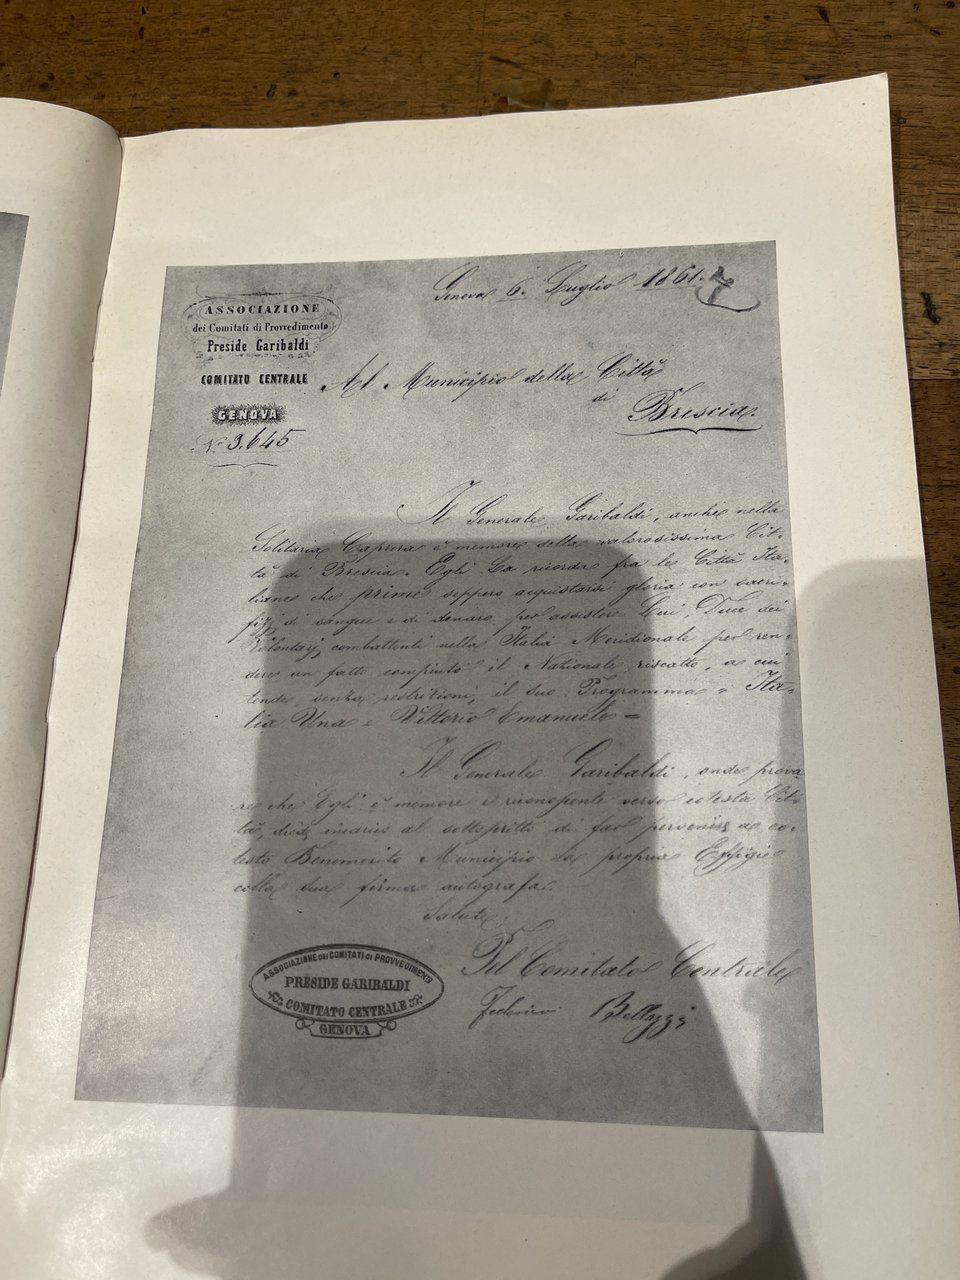 Genova 6. Luglio 1861.
7
ASSOCIAZIONE
dei Comitati di Provvedimento
Preside Garibaldi
COMITATO CENTRALE
GENOVA
N.° 3.645
Al Municipio della Città
di
Brescia.
Il Generale Garibaldi, anche nella
Solitaria Caprera è memore della valorosissima Cit-
tà di Brescia. Egli La ricorda fra le Città Ita-
liane che prime seppero acquistarsi gloria con sacri-
fizj di sangue e di denaro per assistere Lui, Duce dei
Volontarj, combattenti nella Italia Meridionale per ren-
dere un fatto compiuto il Nazionale riscatto, a cui
tende, senza restrizioni, il suo Programma = Ita-
lia Una e Vittorio Emanuele =
Il Generale Garibaldi, onde prova-
re che Egli è memore e riconoscente verso cotesta Cit-
tà, diede incarico al sottoscritto di far pervenire a co-
testo Benemerito Municipio La propria Effigie
colla sua firma autografa.
Salute.
Pel Comitato Centrale
Federico Bellazzi
ASSOCIAZIONE DEI COMITATI DI PROVVEDIMENTO
PRESIDE GARIBALDI
COMITATO CENTRALE
GENOVA